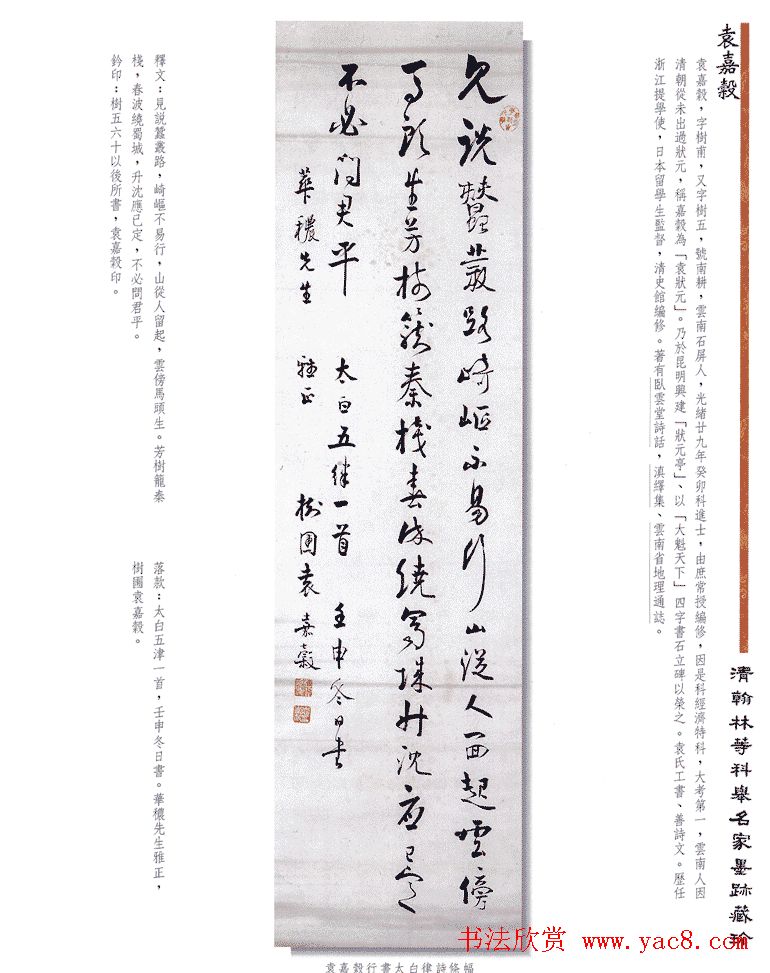 袁嘉穀
袁嘉穀，字樹甫，又字樹五，號南耕，雲南石屏人，光緒廿九年癸卯科進士，由庶常授編修，因是科經濟特科，大考第一，雲南人因
清朝從未出過狀元，稱嘉穀為「袁狀元」。乃於昆明興建「狀元亭」、以「大魁天下」四字書石立碑以榮之。袁氏工書、善詩文。歷任
浙江提學使，日本留學生監督，清史館編修。著有臥雲堂詩話，滇繹集、雲南省地理通誌。
清翰林等科舉名家墨跡藏珍
見說蠶叢路崎嶇不易行山從人面起雲傍
馬頭生芳樹籠秦棧春波繞蜀城升沈應已定
不必問君平
太白五律一首 壬申冬日書
華穠先生 雅正 樹圃袁嘉穀
釋文：見説蠶叢路，崎嶇不易行，山從人留起，雲傍馬頭生。芳樹籠秦
棧，春波繞蜀城，升沈應已定，不必問君平。
鈐印：樹五六十以後所書，袁嘉穀印。
落款：太白五津一首，壬申冬日書。華穠先生雅正，
樹圃袁嘉穀。
袁嘉穀行書太白律詩條幅
书法欣赏 www.yac8.com